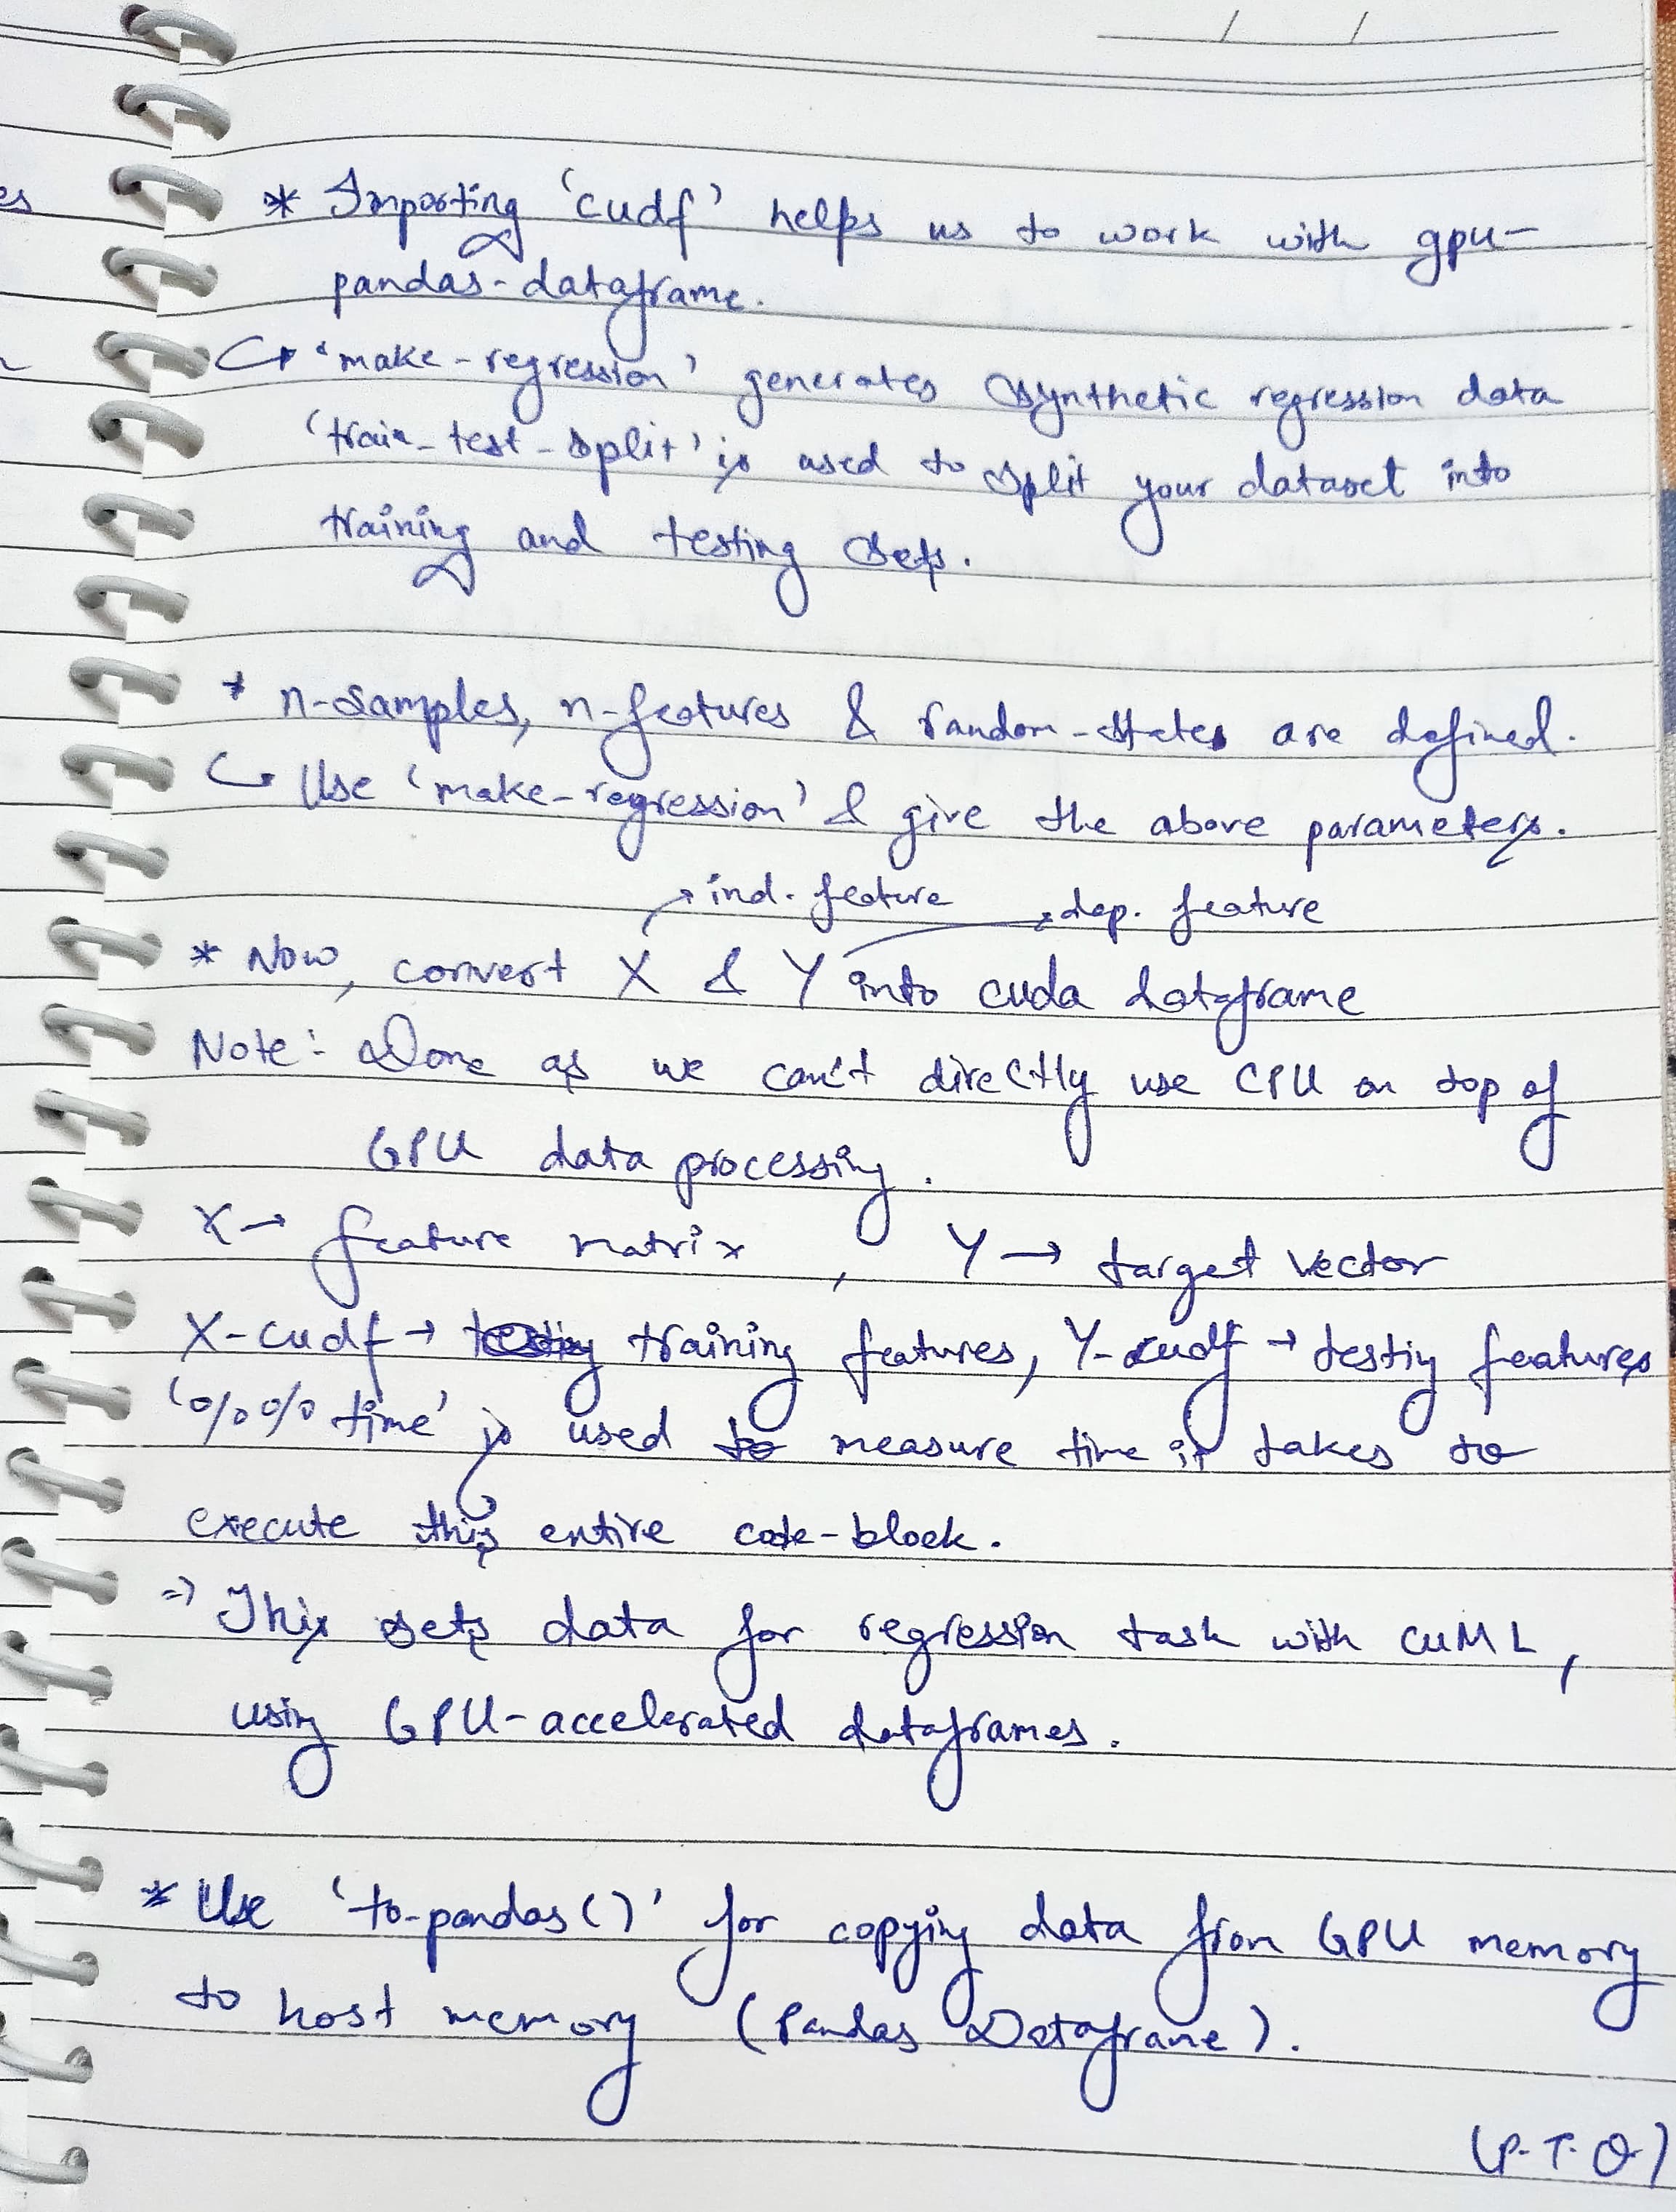 es
* Importing 'cudf' helps us to work with gpu-
pandas-dataframe.
↳ 'make-regression' generates synthetic regression data
'train-test-split' is used to split your dataset into
training and testing sets.
* n-samples, n-features & random-states are defined.
↳ Use 'make-regression' & give the above parameters.
→ ind. feature → dep. feature
* Now, convert X & Y into cuda dataframe
Note:- Done as we can't directly use CPU on top of
GPU data processing.
X → feature matrix , Y → target vector
X-cudf → testing training features, Y-cudf → testing features
'%%time' is used to measure time it takes to
execute this entire code-block.
⇒ This sets data for regression task with cuML,
using GPU-accelerated dataframes.
* Use 'to-pandas()' for copying data from GPU memory
to host memory (Pandas Dataframe).
(P.T.O)